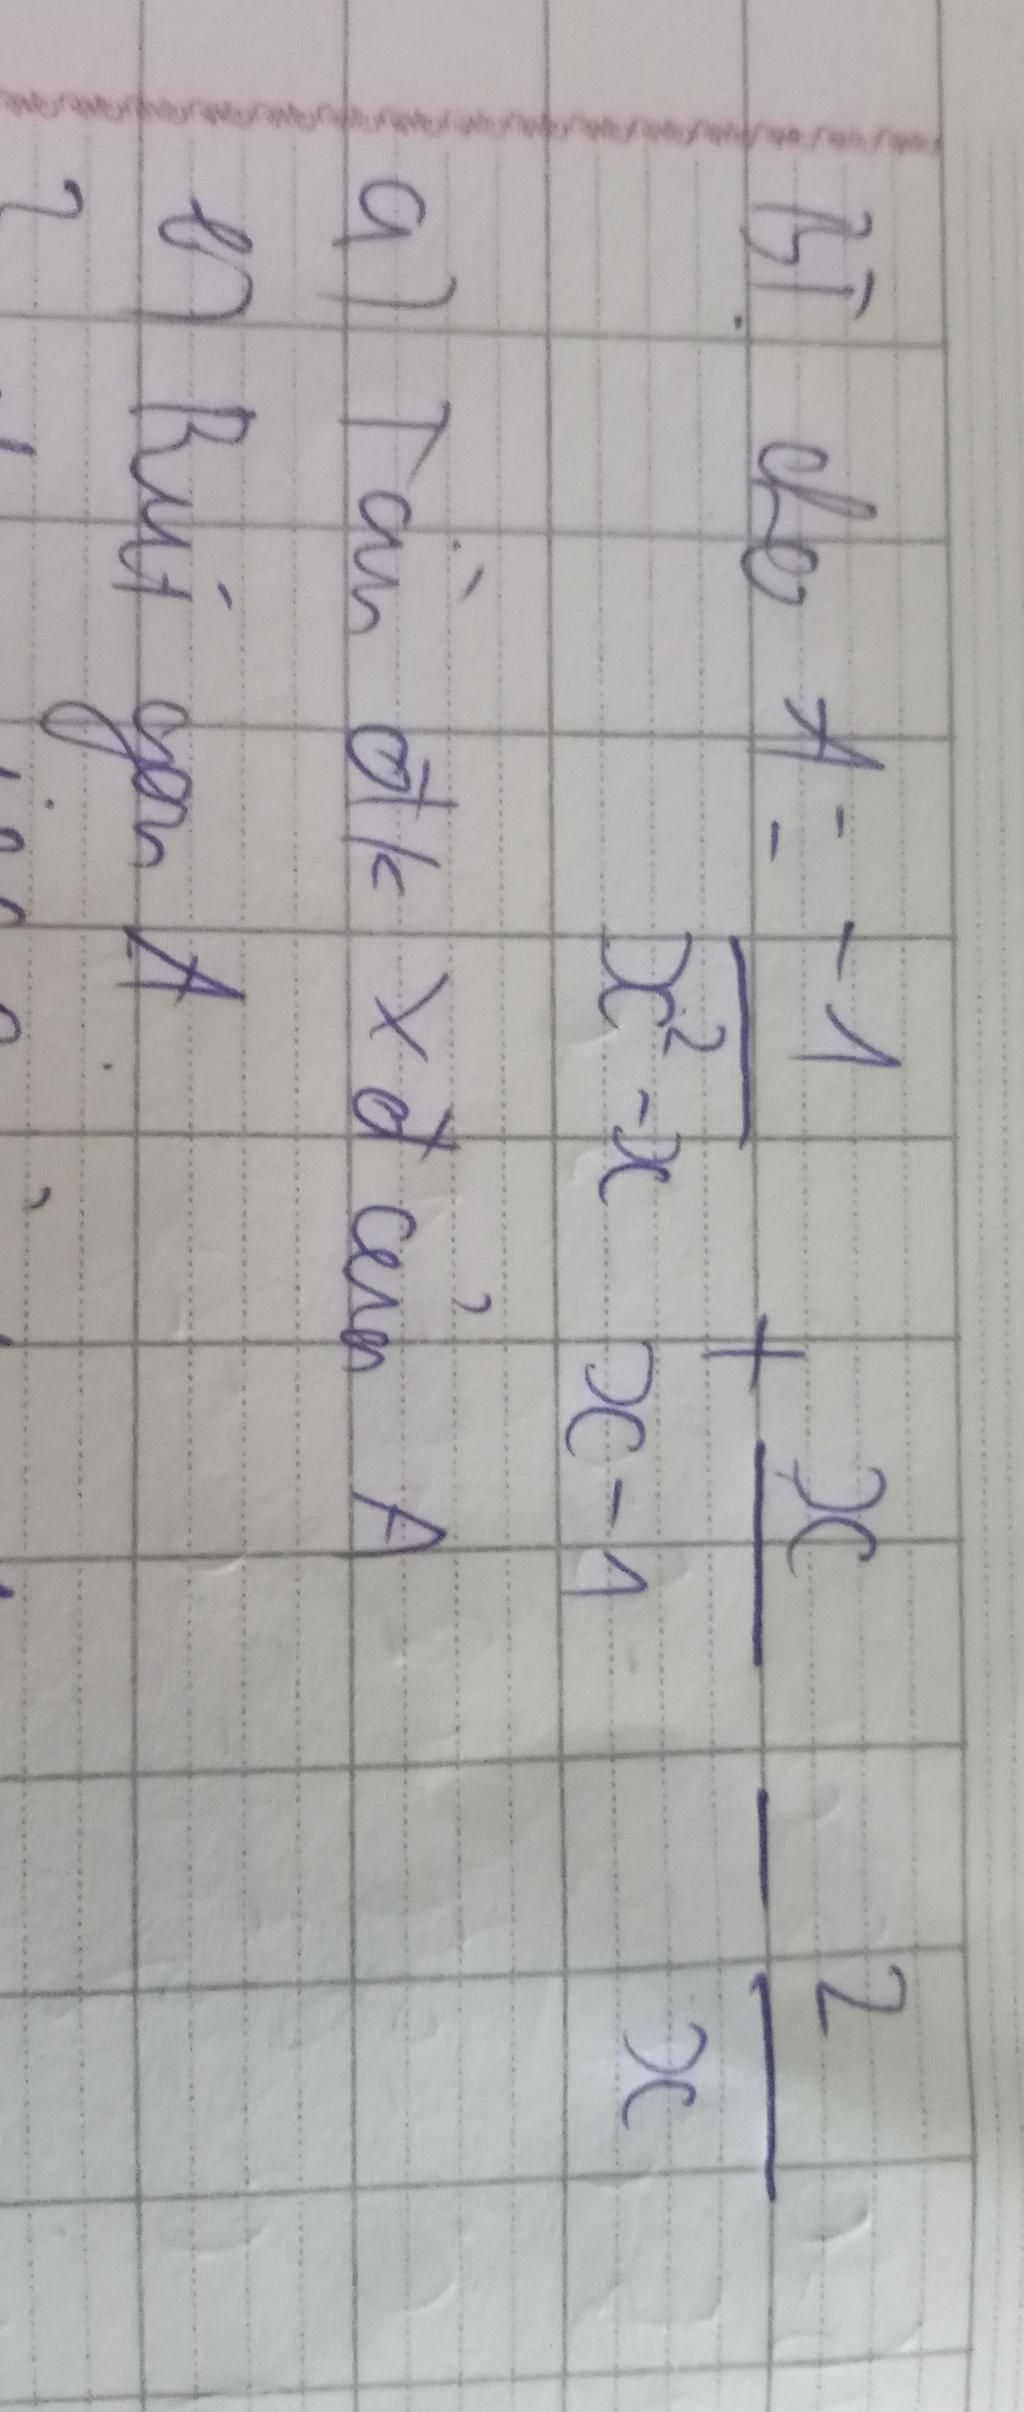 B1. cho A = -1/(x² - x) + x/(x - 1) - 2/x
a) Tìm đk xđ của A
b) Rút gọn A